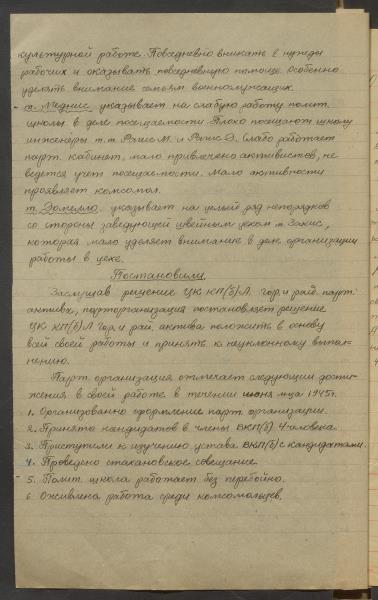 культурной работе. Повседневно вникать в нужды
рабочих и оказывать повседневную помощь. Особенно
уделять внимание семьям военнослужащих.
т. Меднис указывает на слабую работу полит.
школы в деле посещаемости. Плохо посещают школу
инженеры т.т. М. и Д. Слабо работает
парт. кабинет, мало привлечено активистов, не
ведется учет посещаемости. Мало активности
проявляет комсомол.
т. указывает на целый ряд непорядков
со стороны заведующей швейным цехом т. Закис,
которая мало уделяет внимание в деле организации
работы в цехе.
Постановили.
Заслушав решение ЦК КП(б)Л гор. и рай. парт.
актива, парторганизация постановляет решение
ЦК КП(б)Л гор. и рай. актива положить в основу
всей своей работы и принять к неуклонному выпол-
нению.
Парт. организация отмечает следующии дости-
жения в своей работе в течении июня м-ца 1945г.
1. Организованно оформление парт. организации.
2. Принято кандидатов в члены ВКП(б) 4 человека.
3. Приступили к изучению устава ВКП(б) с кандидатами.
4. Проведено стахановское совещание.
5. Полит. школа работает без перебойно.
6. Оживлена работа среди комсомольцев.